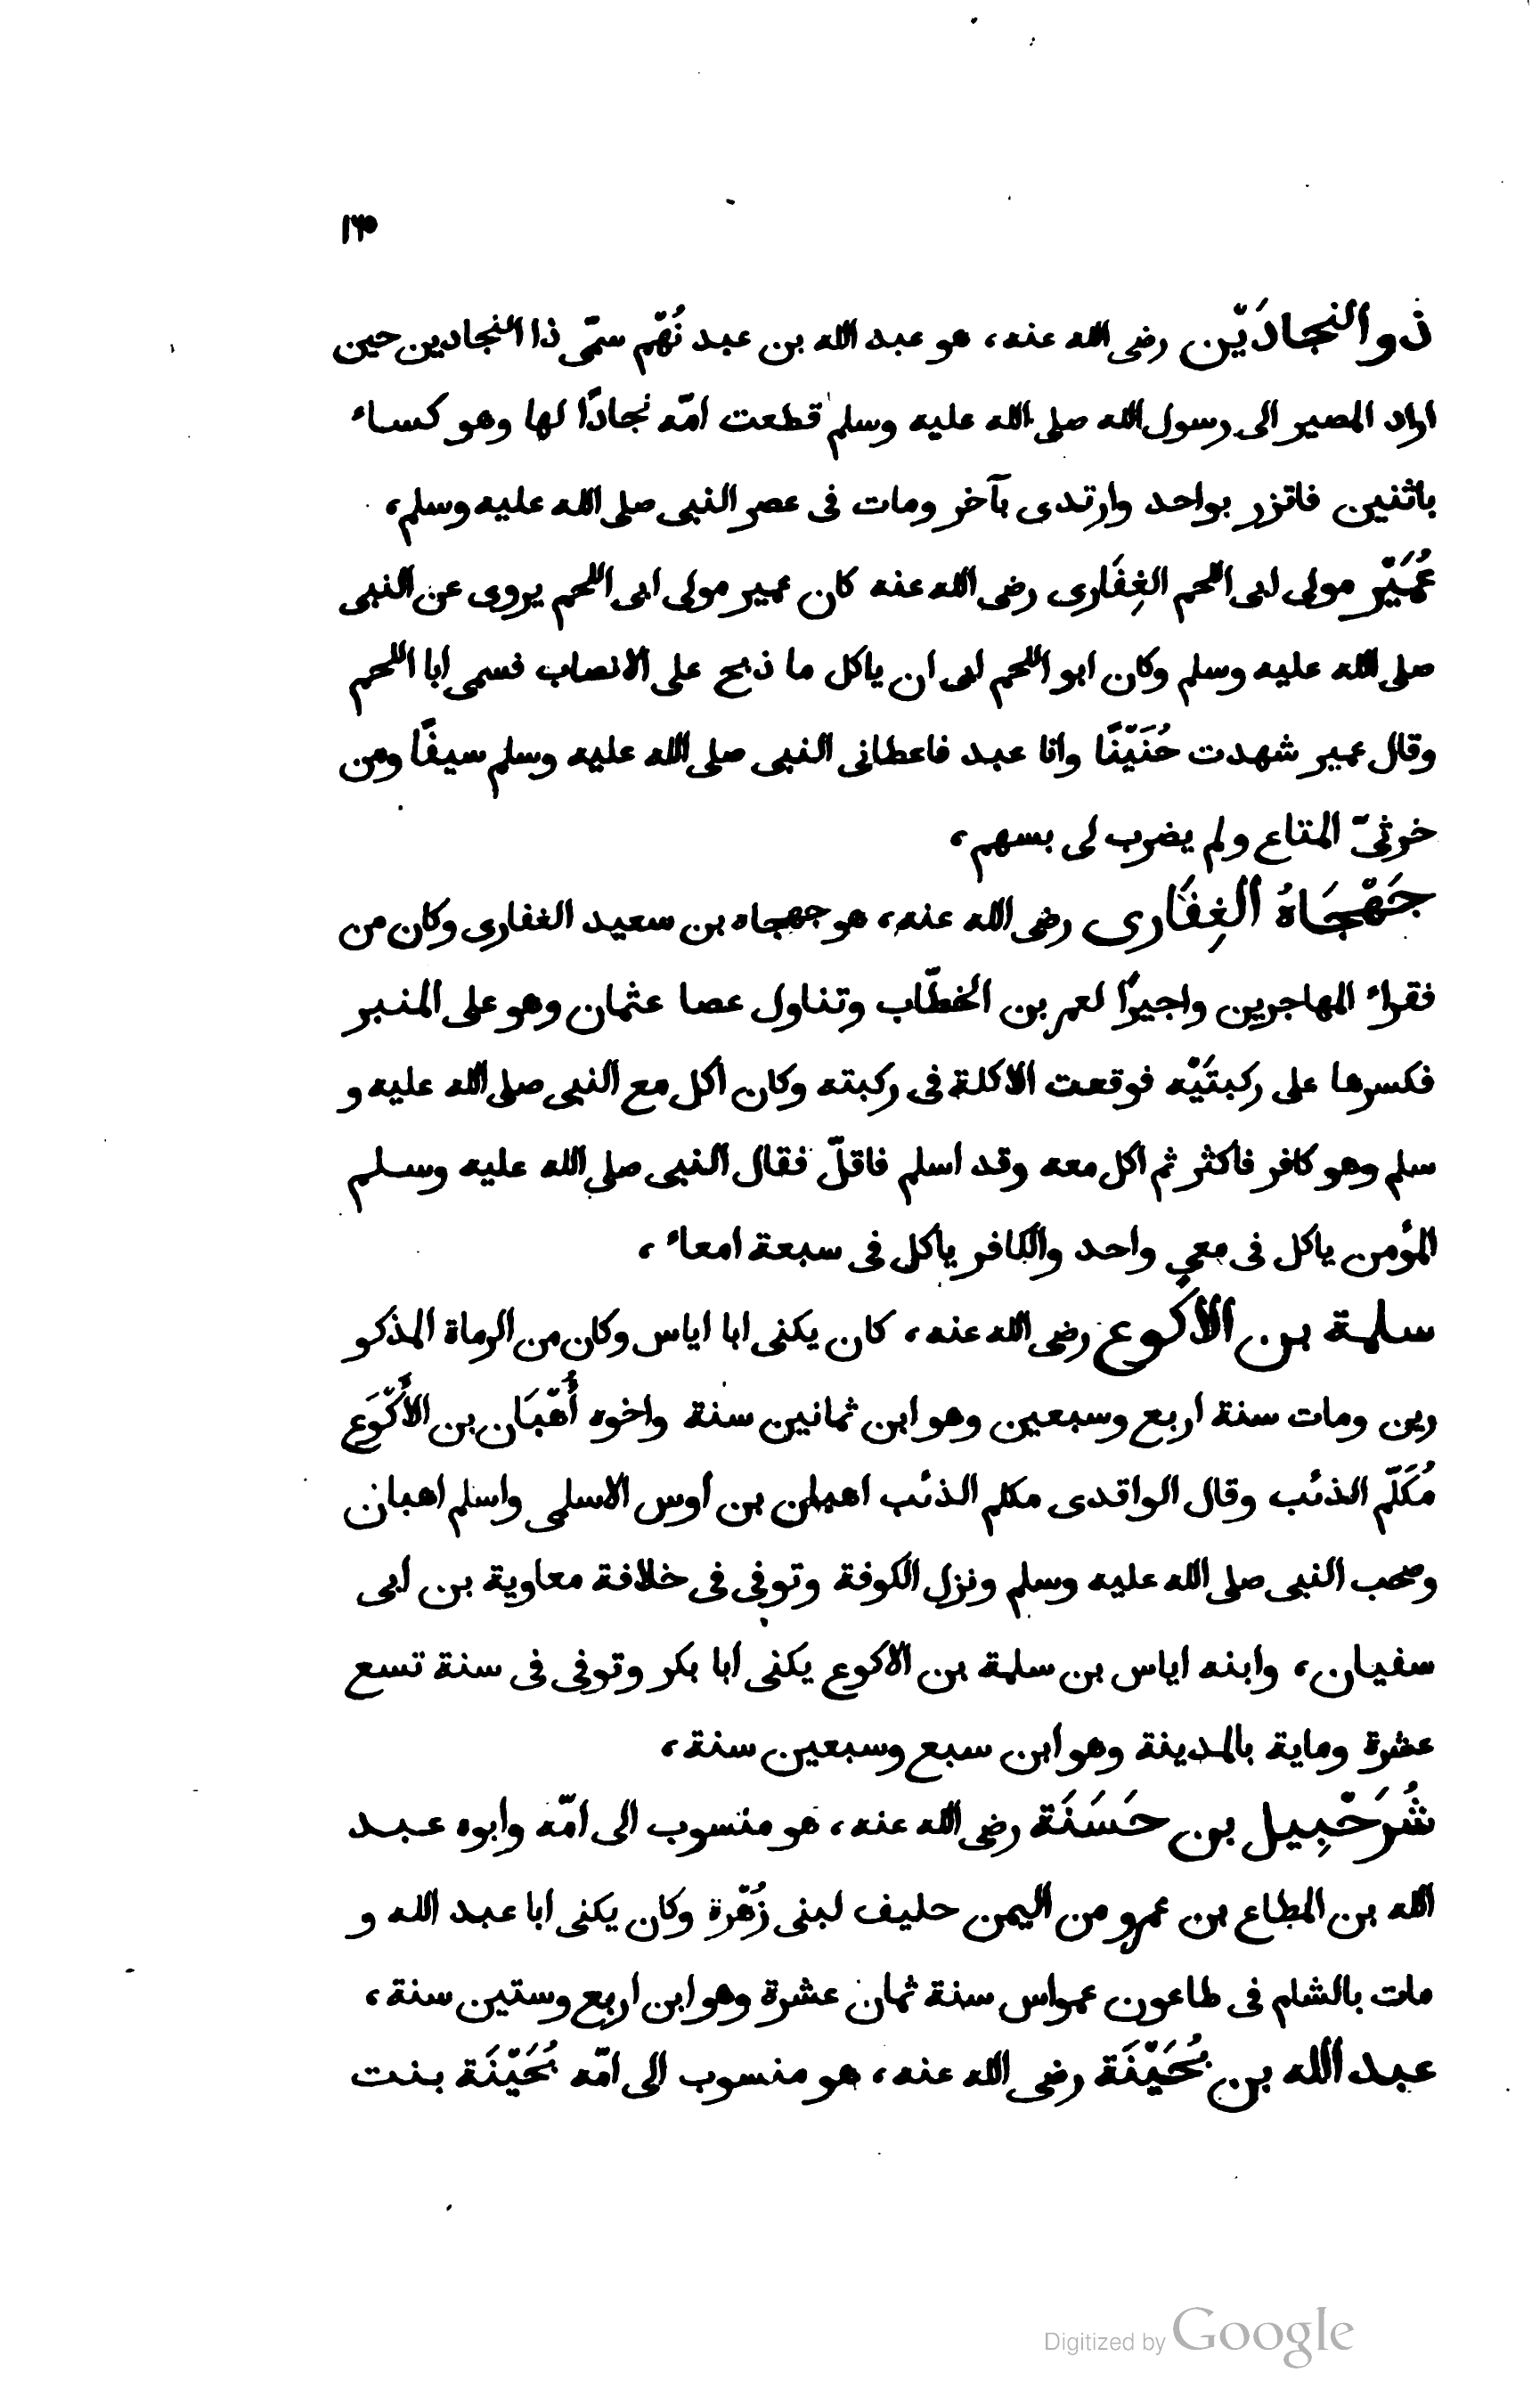 ١٦٥
ذو النجادَيْن رضى الله عنه، هو عبد الله بن عبد نُهْم سمّى ذا النجادين حين
اراد المصير الى رسول الله صلى الله عليه وسلم قطعت امّه نجادًا لها وهو كساء
باثنين فاتزر بواحد وارتدى بآخر ومات فى عصر النبى صلى الله عليه وسلم،
عُمَيْر مولى ابى اللحم الغِفَارى رضى الله عنه كان عمير مولى ابى اللحم يروى عن النبى
صلى الله عليه وسلم وكان ابو اللحم ابى ان ياكل ما ذبح على الانصاب فسمى ابا اللحم
وقال عمير شهدت حُنَيْنًا وانا عبد فاعطانى النبى صلى الله عليه وسلم سيفًا ومن
خرثىّ المتاع ولم يضرب لى بسهم،
جَهْجَاهُ الغِفَارى رضى الله عنه، هو جهجاه بن سعيد الغفارى وكان من
فقراء المهاجرين واجيرًا لعمر بن الخطّاب وتناول عصا عثمان وهو على المنبر
فكسرها على ركبتَيْه فوقعت الاكلة فى ركبته وكان اكل مع النبى صلى الله عليه و
سلم وهو كافر فاكثر ثم اكل معه وقد اسلم فاقلّ فقال النبى صلى الله عليه وسلم
المؤمن ياكل فى معى واحد والكافر ياكل فى سبعة امعاء،
سلمة بن الاكوع رضى الله عنه، كان يكنى ابا اياس وكان من الرماة المذكو
رين ومات سنة اربع وسبعين وهو ابن ثمانين سنة واخوه أُهْبَان بن الأَكْوَع
مُكَلّم الذئب وقال الواقدى مكلم الذئب اهبان بن اوس الاسلمى واسلم اهبان
وصحب النبى صلى الله عليه وسلم ونزل الكوفة وتوفى فى خلافة معاوية بن ابى
سفيان، وابنه اياس بن سلمة بن الاكوع يكنى ابا بكر وتوفى فى سنة تسع
عشرة وماية بالمدينة وهو ابن سبع وسبعين سنة،
شُرَحْبِيل بن حَسَنَة رضى الله عنه، هو منسوب الى امّه وابوه عبد
الله بن المطاع بن عمرو من اليمن حليف لبنى زُهْرة وكان يكنى ابا عبد الله و
مات بالشام فى طاعون عمواس سنة ثمان عشرة وهو ابن اربع وستين سنة،
عبد الله بن بُحَيْنَة رضى الله عنه، هو منسوب الى امّه بُحَيْنَة بنت
Digitized by Google